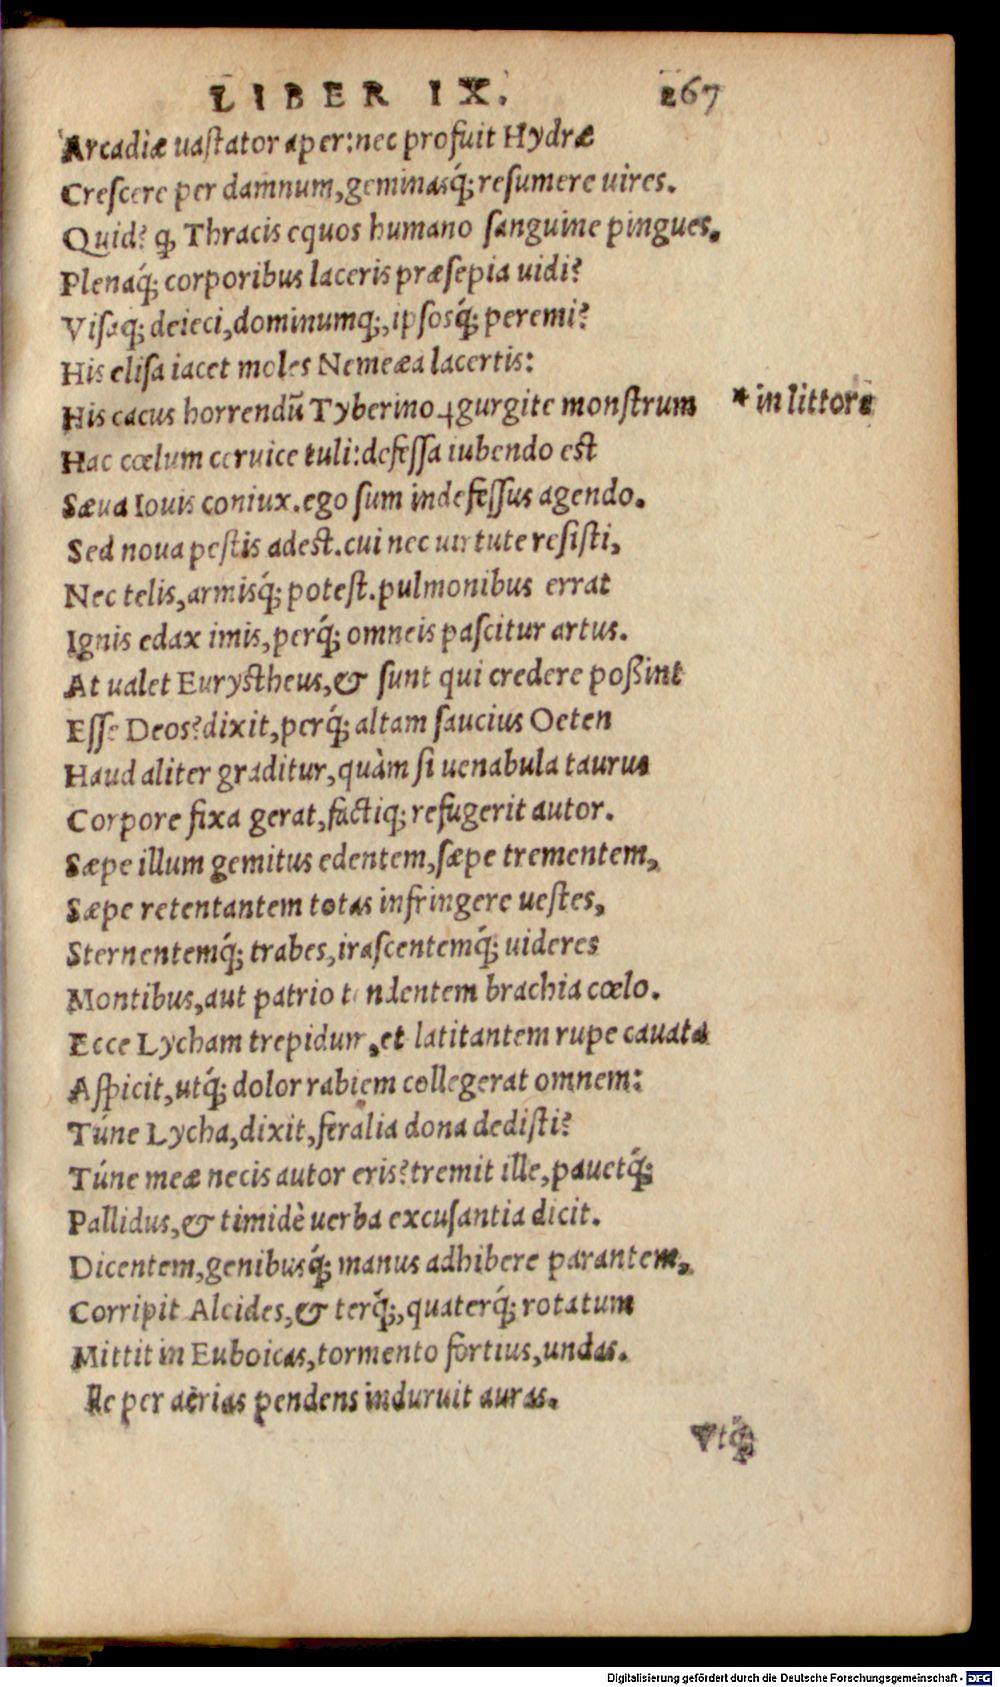 LIBER IX. 267
Arcadiæ uaſtator aper: nec profuit Hydræ
Creſcere per damnum, geminasq́; reſumere uires.
Quid? ꝙ Thracis equos humano ſanguine pingues.
Plenaq́; corporibus laceris præſepia uidi?
Viſaq; deieci, dominumq;, ipſosq́; peremi?
His eliſa iacet moles Nemeæa lacertis:
His cacus horrendũ Tyberino ⸓ gurgite monſtrum * in littore
Hac cœlum ceruice tuli: defeſſa iubendo est
Sæua Iouis coniux. ego ſum indefeſſus agendo.
Sed noua peſtis adest. cui nec uirtute reſiſti,
Nec telis, armisq́; poteſt. pulmonibus errat
Ignis edax imis, perq́; omneis paſcitur artus.
At ualet Euryſtheus, & ſunt qui credere poßint
Eſſe Deos? dixit, perq́; altam ſaucius Oeten
Haud aliter graditur, quàm ſi uenabula taurus
Corpore fixa gerat, factiq; refugerit autor.
Sæpe illum gemitus edentem, ſæpe trementem,
Sæpe retentantem totas infringere ueſtes,
Sternentemq́; trabes, iraſcentemq́; uideres
Montibus, aut patrio tendentem brachia cœlo.
Ecce Lycham trepidum, et latitantem rupe cauata
Aſpicit, utq́; dolor rabiem collegerat omnem:
Túne Lycha, dixit, feralia dona dediſti?
Túne meæ necis autor eris? tremit ille, pauetq́;
Pallidus, & timidè uerba excuſantia dicit.
Dicentem, genibusq́; manus adhibere parantem,
Corripit Alcides, & terq́;, quaterq́; rotatum
Mittit in Euboicas, tormento fortius, undas.
Ille per aërias pendens induruit auras.
Vtq́;
Digitalisierung gefördert durch die Deutsche Forschungsgemeinschaft - DFG